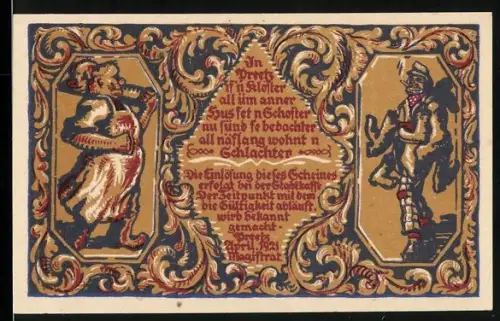 In
Preetz
is' n Kloster
all üm anner
Hus set n Schoster
nu sünd se bedachter
all näslang wohnt n
Schlachter
Die Einlösung dieses Scheines
erfolgt bei der Stadtkasse
Der Zeitpunkt mit dem
die Gültigkeit abläuft,
wird bekannt
gemacht
Preetz
April 1921
Magistrat